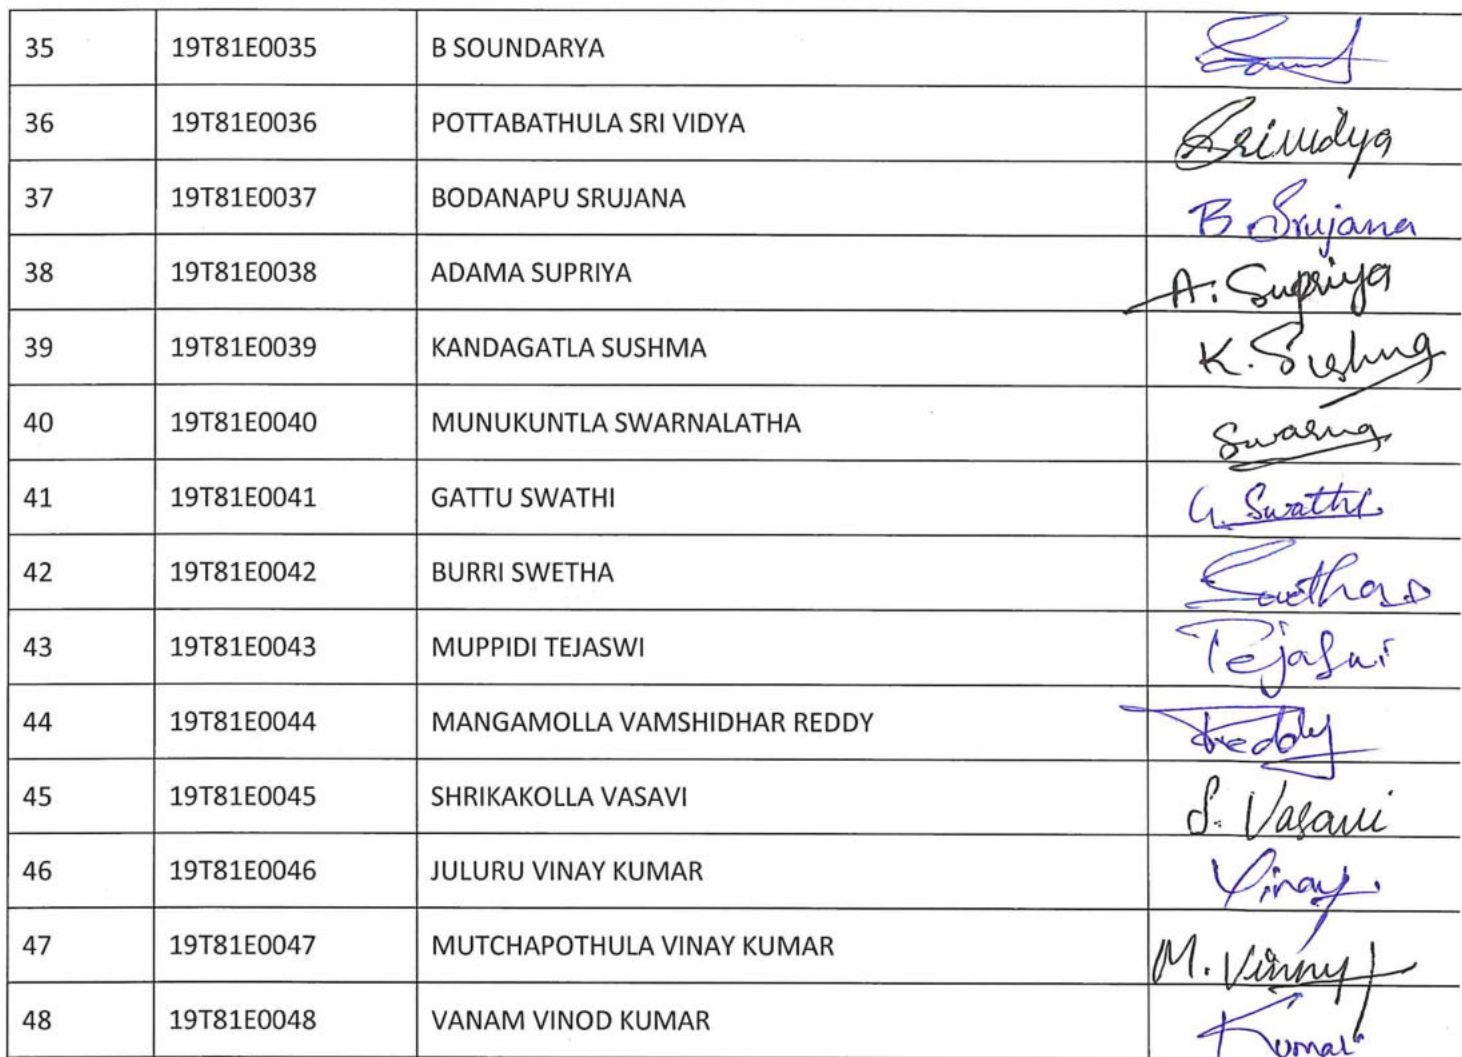 35 19T81E0035 B SOUNDARYA
36 19T81E0036 POTTABATHULA SRI VIDYA Srividya
37 19T81E0037 BODANAPU SRUJANA B. Srujana
38 19T81E0038 ADAMA SUPRIYA A. Supriya
39 19T81E0039 KANDAGATLA SUSHMA K. Sushma
40 19T81E0040 MUNUKUNTLA SWARNALATHA Swarna
41 19T81E0041 GATTU SWATHI G. Swathi
42 19T81E0042 BURRI SWETHA Swetha
43 19T81E0043 MUPPIDI TEJASWI Tejaswi
44 19T81E0044 MANGAMOLLA VAMSHIDHAR REDDY Reddy
45 19T81E0045 SHRIKAKOLLA VASAVI S. Vasavi
46 19T81E0046 JULURU VINAY KUMAR Vinay
47 19T81E0047 MUTCHAPOTHULA VINAY KUMAR M. Vinny
48 19T81E0048 VANAM VINOD KUMAR Kumar